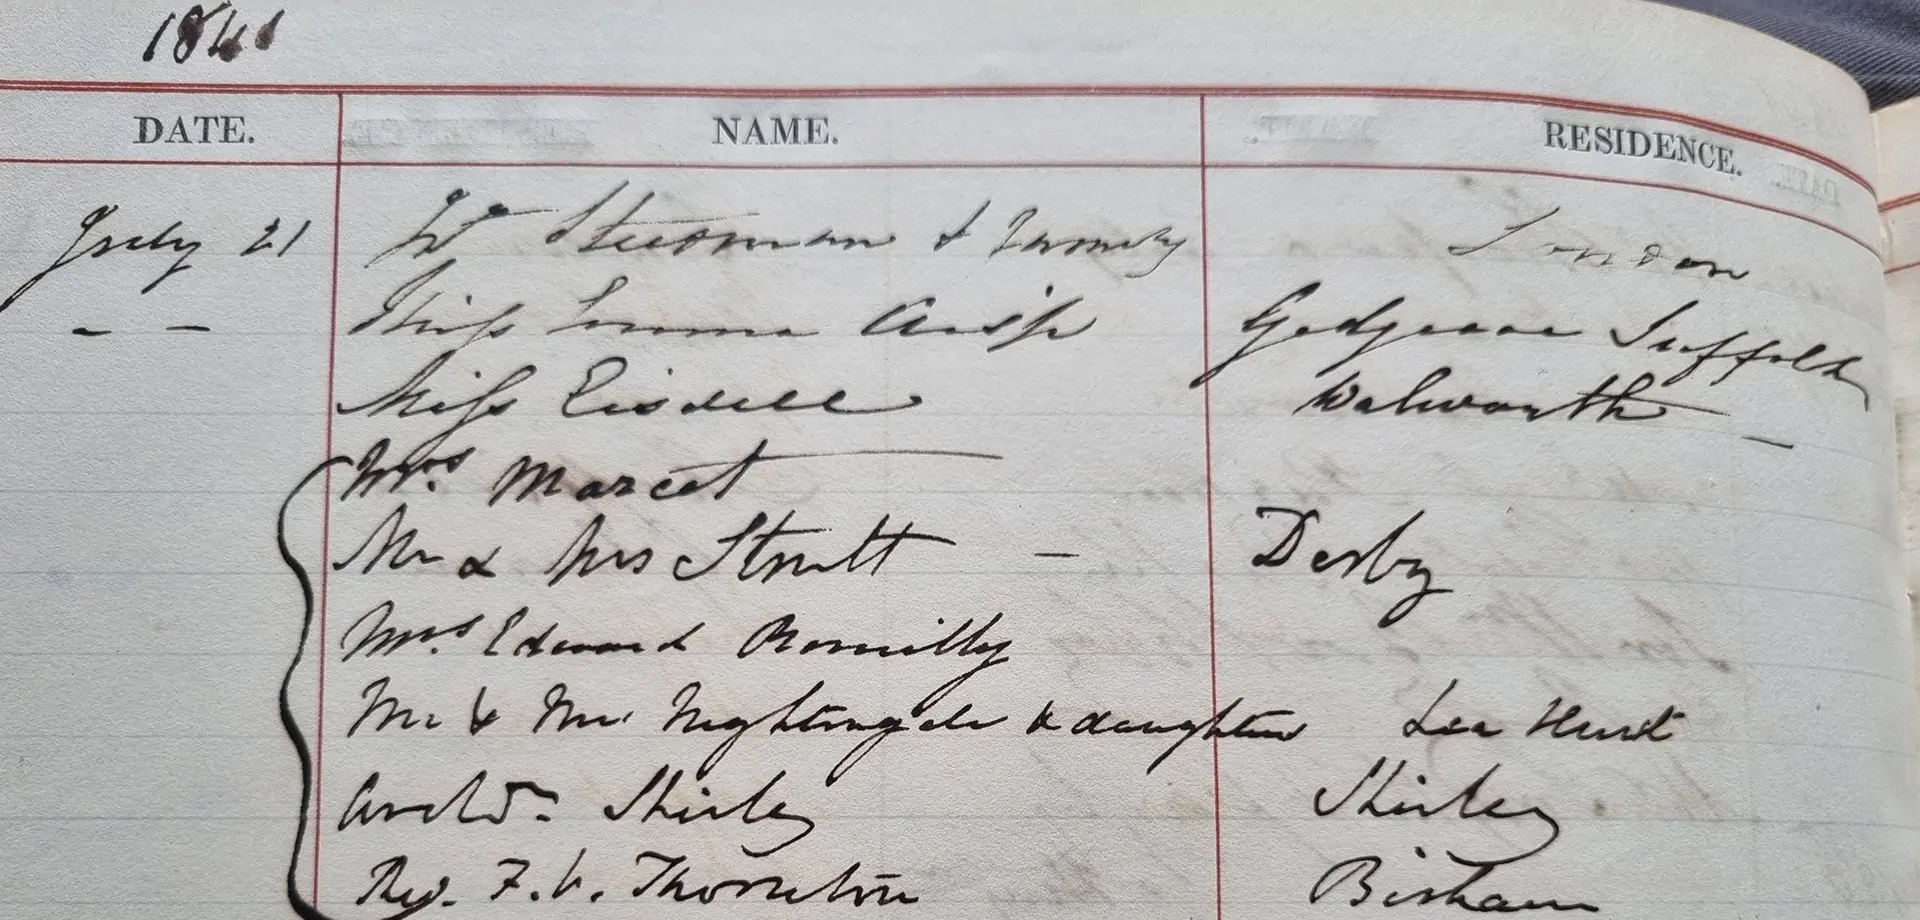 1841
DATE. NAME. RESIDENCE.
July 21 Steedman & Family London
- - Miss Emma Crisp Gedgrave Suffolk
Miss Eisdell Walworth -
Mrs. Marcet
Mr & Mrs Strutt - Derby
Mrs. Edward Romilly
Mr & Mrs Nightingale & daughter Lea Hurst
Archd. Shirley Shirley
Rev. F. V. Thornton Bisham